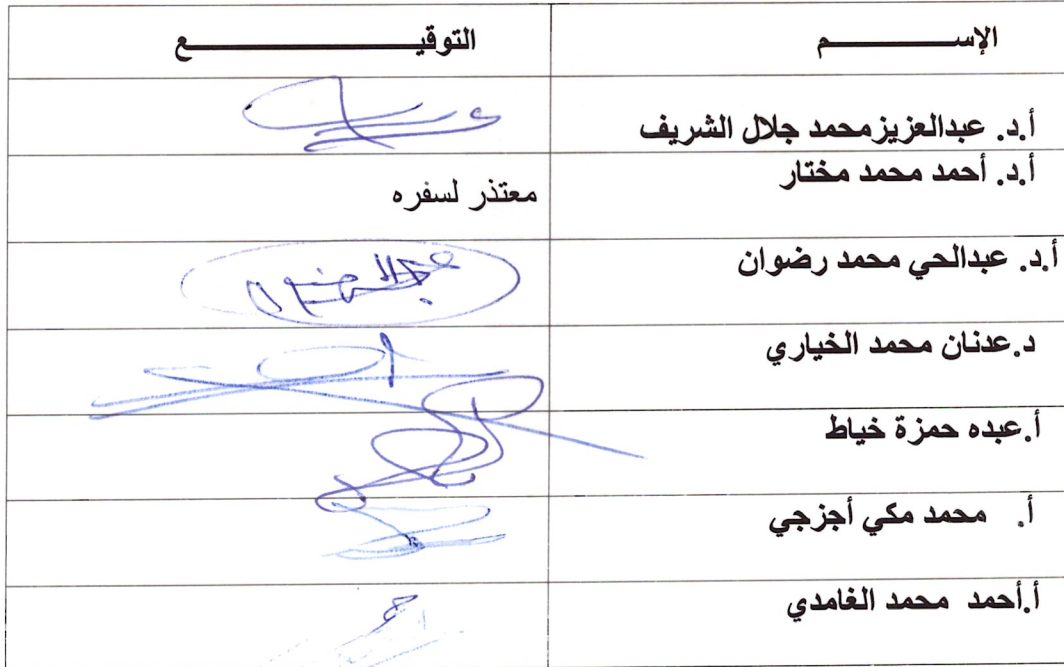 الإســــــم التوقيـــــــــع
أ.د. عبدالعزيزمحمد جلال الشريف
أ.د. أحمد محمد مختار معتذر لسفره
أ.د. عبدالحي محمد رضوان
د.عدنان محمد الخياري
أ.عبده حمزة خياط
أ. محمد مكي أجزجي
أ.أحمد محمد الغامدي